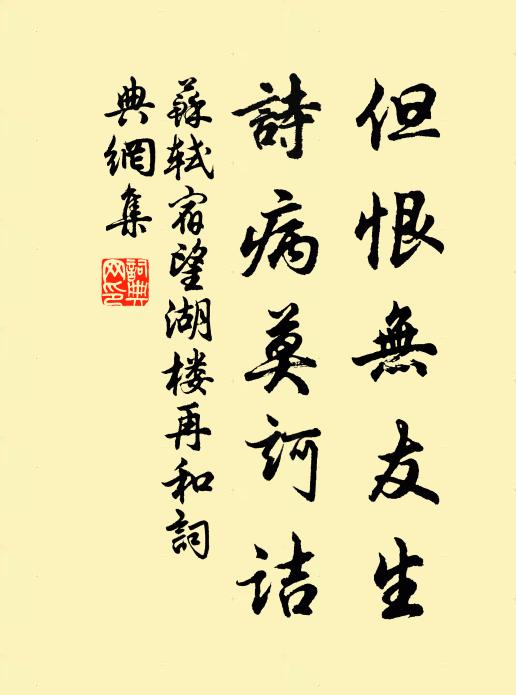 但恨無友生
詩病莫訶詰
蘇軾宿望湖楼再和詞
典網集
詞典
网印